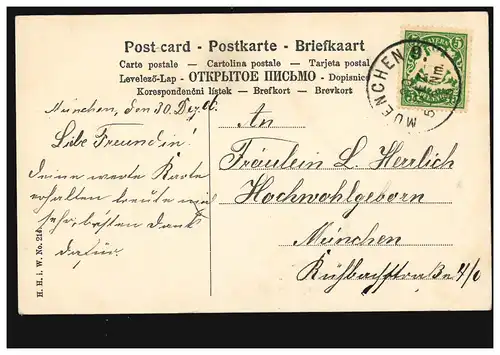 Post card - Postkarte - Briefkaart
Carte postale - Cartolina postale - Tarjeta postal
Levelező-Lap - ОТКРЫТОЕ ПИСЬМО - Dopisnice
Korespondenční lístek - Brefkort - Brevkort
BAYERN
5
MUENCHEN
Nm.
München, den 30. Dez. 06.
Liebe Freundin!
deine werte Karte
erhalten freute mich
sehr, besten Dank
dafür.
An
Fräulein L. Herrlich
Hochwohlgeborn
München
Kühbachstraße 4/0
H. H. i. W. No. 216